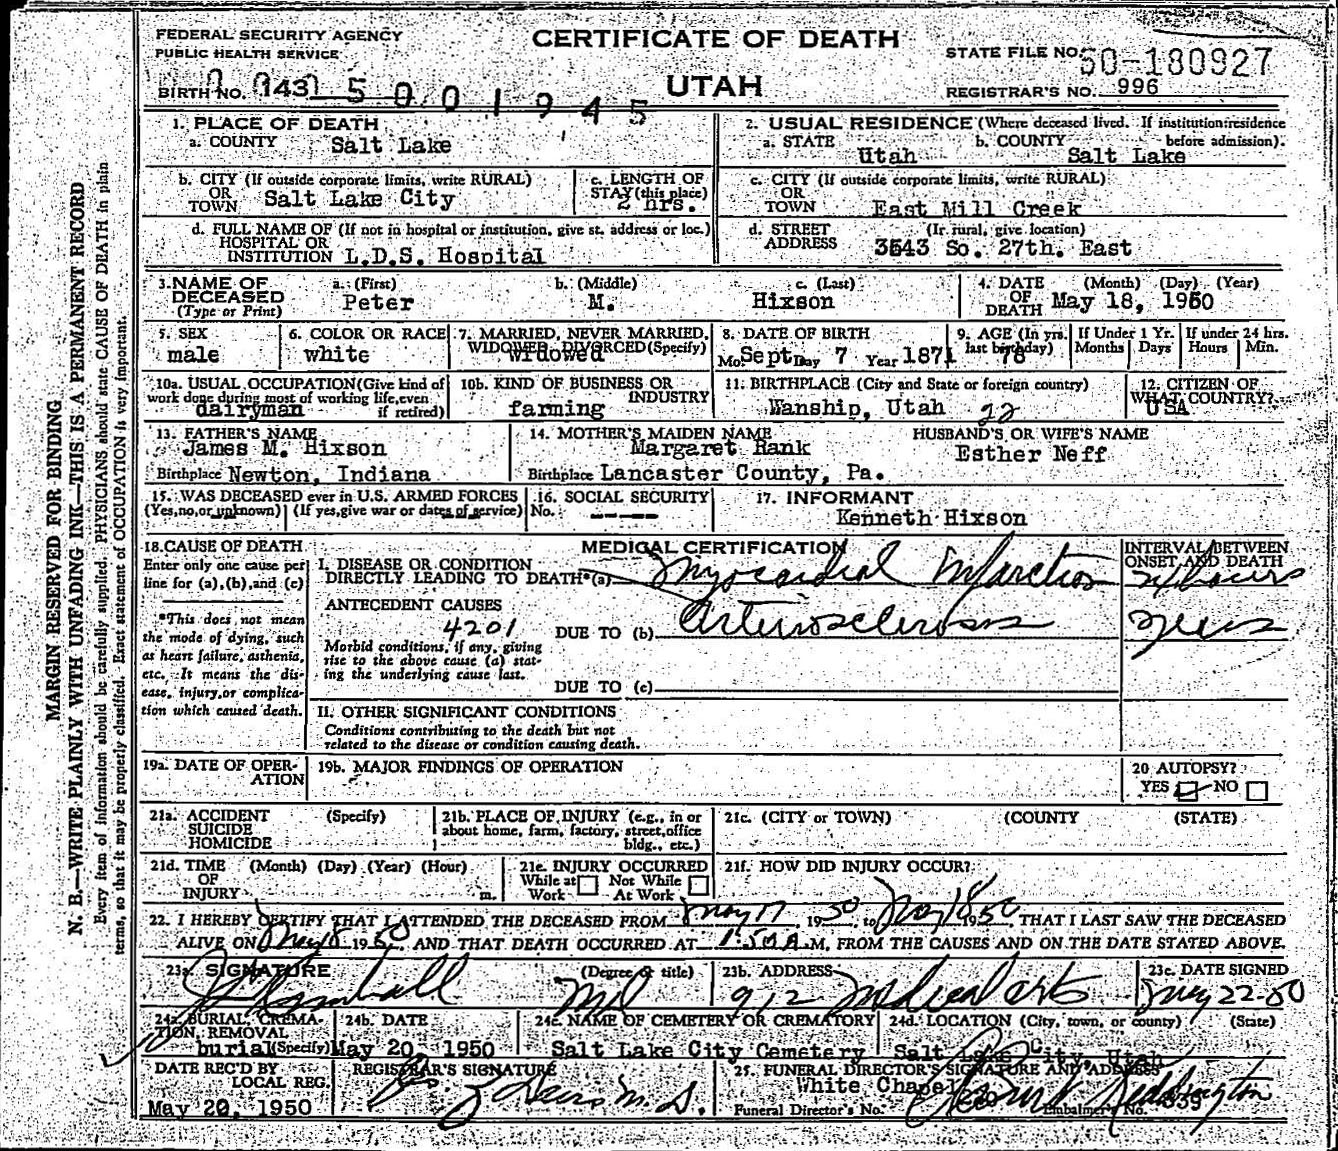 FEDERAL SECURITY AGENCY
PUBLIC HEALTH SERVICE
CERTIFICATE OF DEATH
UTAH
STATE FILE NO. 50-180927
REGISTRAR'S NO. 996
BIRTH NO. 143
5001945
1. PLACE OF DEATH
a. COUNTY Salt Lake
2. USUAL RESIDENCE (Where deceased lived. If institution:residence before admission).
a. STATE Utah b. COUNTY Salt Lake
b. CITY (If outside corporate limits, write RURAL) OR TOWN Salt Lake City
c. LENGTH OF STAY (this place) 2 hrs.
c. CITY (If outside corporate limits, write RURAL) OR TOWN East Mill Creek
d. FULL NAME OF (If not in hospital or institution, give st. address or loc.) HOSPITAL OR INSTITUTION L.D.S. Hospital
d. STREET ADDRESS (If rural, give location) 3543 So. 27th. East
3. NAME OF DECEASED (Type or Print)
a. (First) Peter
b. (Middle) M.
c. (Last) Hixson
4. DATE OF DEATH (Month) (Day) (Year) May 18, 1950
5. SEX male
6. COLOR OR RACE white
7. MARRIED, NEVER MARRIED, WIDOWED, DIVORCED (Specify) widowed
8. DATE OF BIRTH Mo. Sept Day 7 Year 1871
9. AGE (In yrs. last birthday) 78
If Under 1 Yr. Months Days
If under 24 hrs. Hours Min.
10a. USUAL OCCUPATION (Give kind of work done during most of working life, even if retired) dairyman
10b. KIND OF BUSINESS OR INDUSTRY farming
11. BIRTHPLACE (City and State or foreign country) Wanship, Utah 22
12. CITIZEN OF WHAT COUNTRY? USA
13. FATHER'S NAME James M. Hixson
Birthplace Newton, Indiana
14. MOTHER'S MAIDEN NAME Margaret Rank
Birthplace Lancaster County, Pa.
HUSBAND'S OR WIFE'S NAME Esther Neff
15. WAS DECEASED ever in U.S. ARMED FORCES
(Yes, no, or unknown) (If yes, give war or dates of service)
16. SOCIAL SECURITY No. -----
17. INFORMANT Kenneth Hixson
18. CAUSE OF DEATH
Enter only one cause per line for (a), (b), and (c)
*This does not mean the mode of dying, such as heart failure, asthenia, etc. It means the disease, injury, or complication which caused death.
MEDICAL CERTIFICATION
INTERVAL BETWEEN ONSET AND DEATH
I. DISEASE OR CONDITION DIRECTLY LEADING TO DEATH* (a) Myocardial Infarction hours
ANTECEDENT CAUSES
4201
DUE TO (b) Arteriosclerosis years
Morbid conditions, if any, giving rise to the above cause (a) stating the underlying cause last.
DUE TO (c)
II. OTHER SIGNIFICANT CONDITIONS
Conditions contributing to the death but not related to the disease or condition causing death.
19a. DATE OF OPERATION
19b. MAJOR FINDINGS OF OPERATION
20 AUTOPSY? YES NO
21a. ACCIDENT SUICIDE HOMICIDE (Specify)
21b. PLACE OF INJURY (e.g., in or about home, farm, factory, street, office bldg., etc.)
21c. (CITY or TOWN) (COUNTY (STATE)
21d. TIME OF INJURY (Month) (Day) (Year) (Hour) m.
21e. INJURY OCCURRED While at Work Not While At Work
21f. HOW DID INJURY OCCUR?
22. I HEREBY CERTIFY THAT I ATTENDED THE DECEASED FROM May 17 1950 to May 18 1950 THAT I LAST SAW THE DECEASED
ALIVE ON May 8 1950, AND THAT DEATH OCCURRED AT 1:50 A M, FROM THE CAUSES AND ON THE DATE STATED ABOVE.
23a. SIGNATURE Kimball (Degree or title) MD
23b. ADDRESS 912 Medical Arts
23c. DATE SIGNED May 22-50
24a. BURIAL, CREMATION, REMOVAL (Specify) burial
24b. DATE May 20, 1950
24c. NAME OF CEMETERY OR CREMATORY Salt Lake City Cemetery
24d. LOCATION (City, town, or county) (State) Salt Lake City, Utah
DATE REC'D BY LOCAL REG. May 20, 1950
REGISTRAR'S SIGNATURE M.D.
25. FUNERAL DIRECTOR'S SIGNATURE AND ADDRESS
White Chapel
Funeral Director's No. Embalmer's No.
MARGIN RESERVED FOR BINDING
N. B.—WRITE PLAINLY WITH UNFADING INK—THIS IS A PERMANENT RECORD
Every item of information should be carefully supplied. PHYSICIANS should state CAUSE OF DEATH in plain
terms, so that it may be properly classified. Exact statement of OCCUPATION is very important.